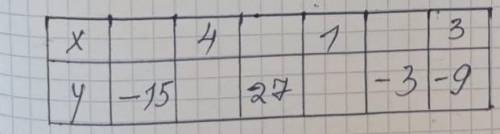 x 4 1 3
y -15 27 -3 -9